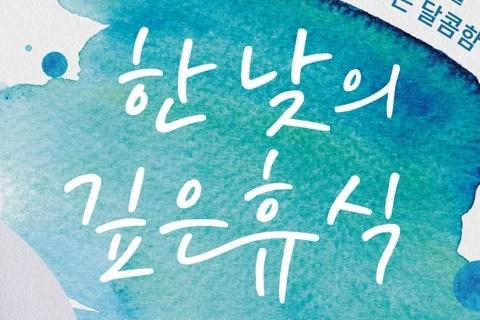 달콤함
한 낮의
깊은 휴식